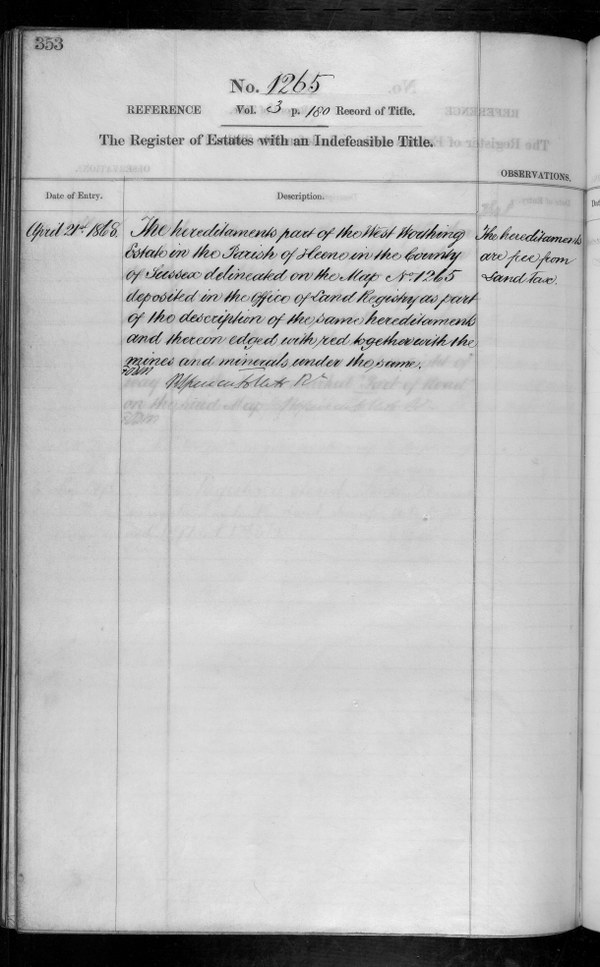 353
No. 1265
REFERENCE Vol. 3 p. 180 Record of Title.
The Register of Estates with an Indefeasible Title.
OBSERVATIONS.
Date of Entry.
Description.
April 21st 1868.
The hereditaments part of the West Worthing
Estate in the Parish of Heene in the County
of Sussex delineated on the Map No 1265
deposited in the Office of Land Registry as part
of the description of the same hereditaments
and thereon edged with red together with the
mines and minerals under the same.
The hereditaments
are free from
Land Tax.